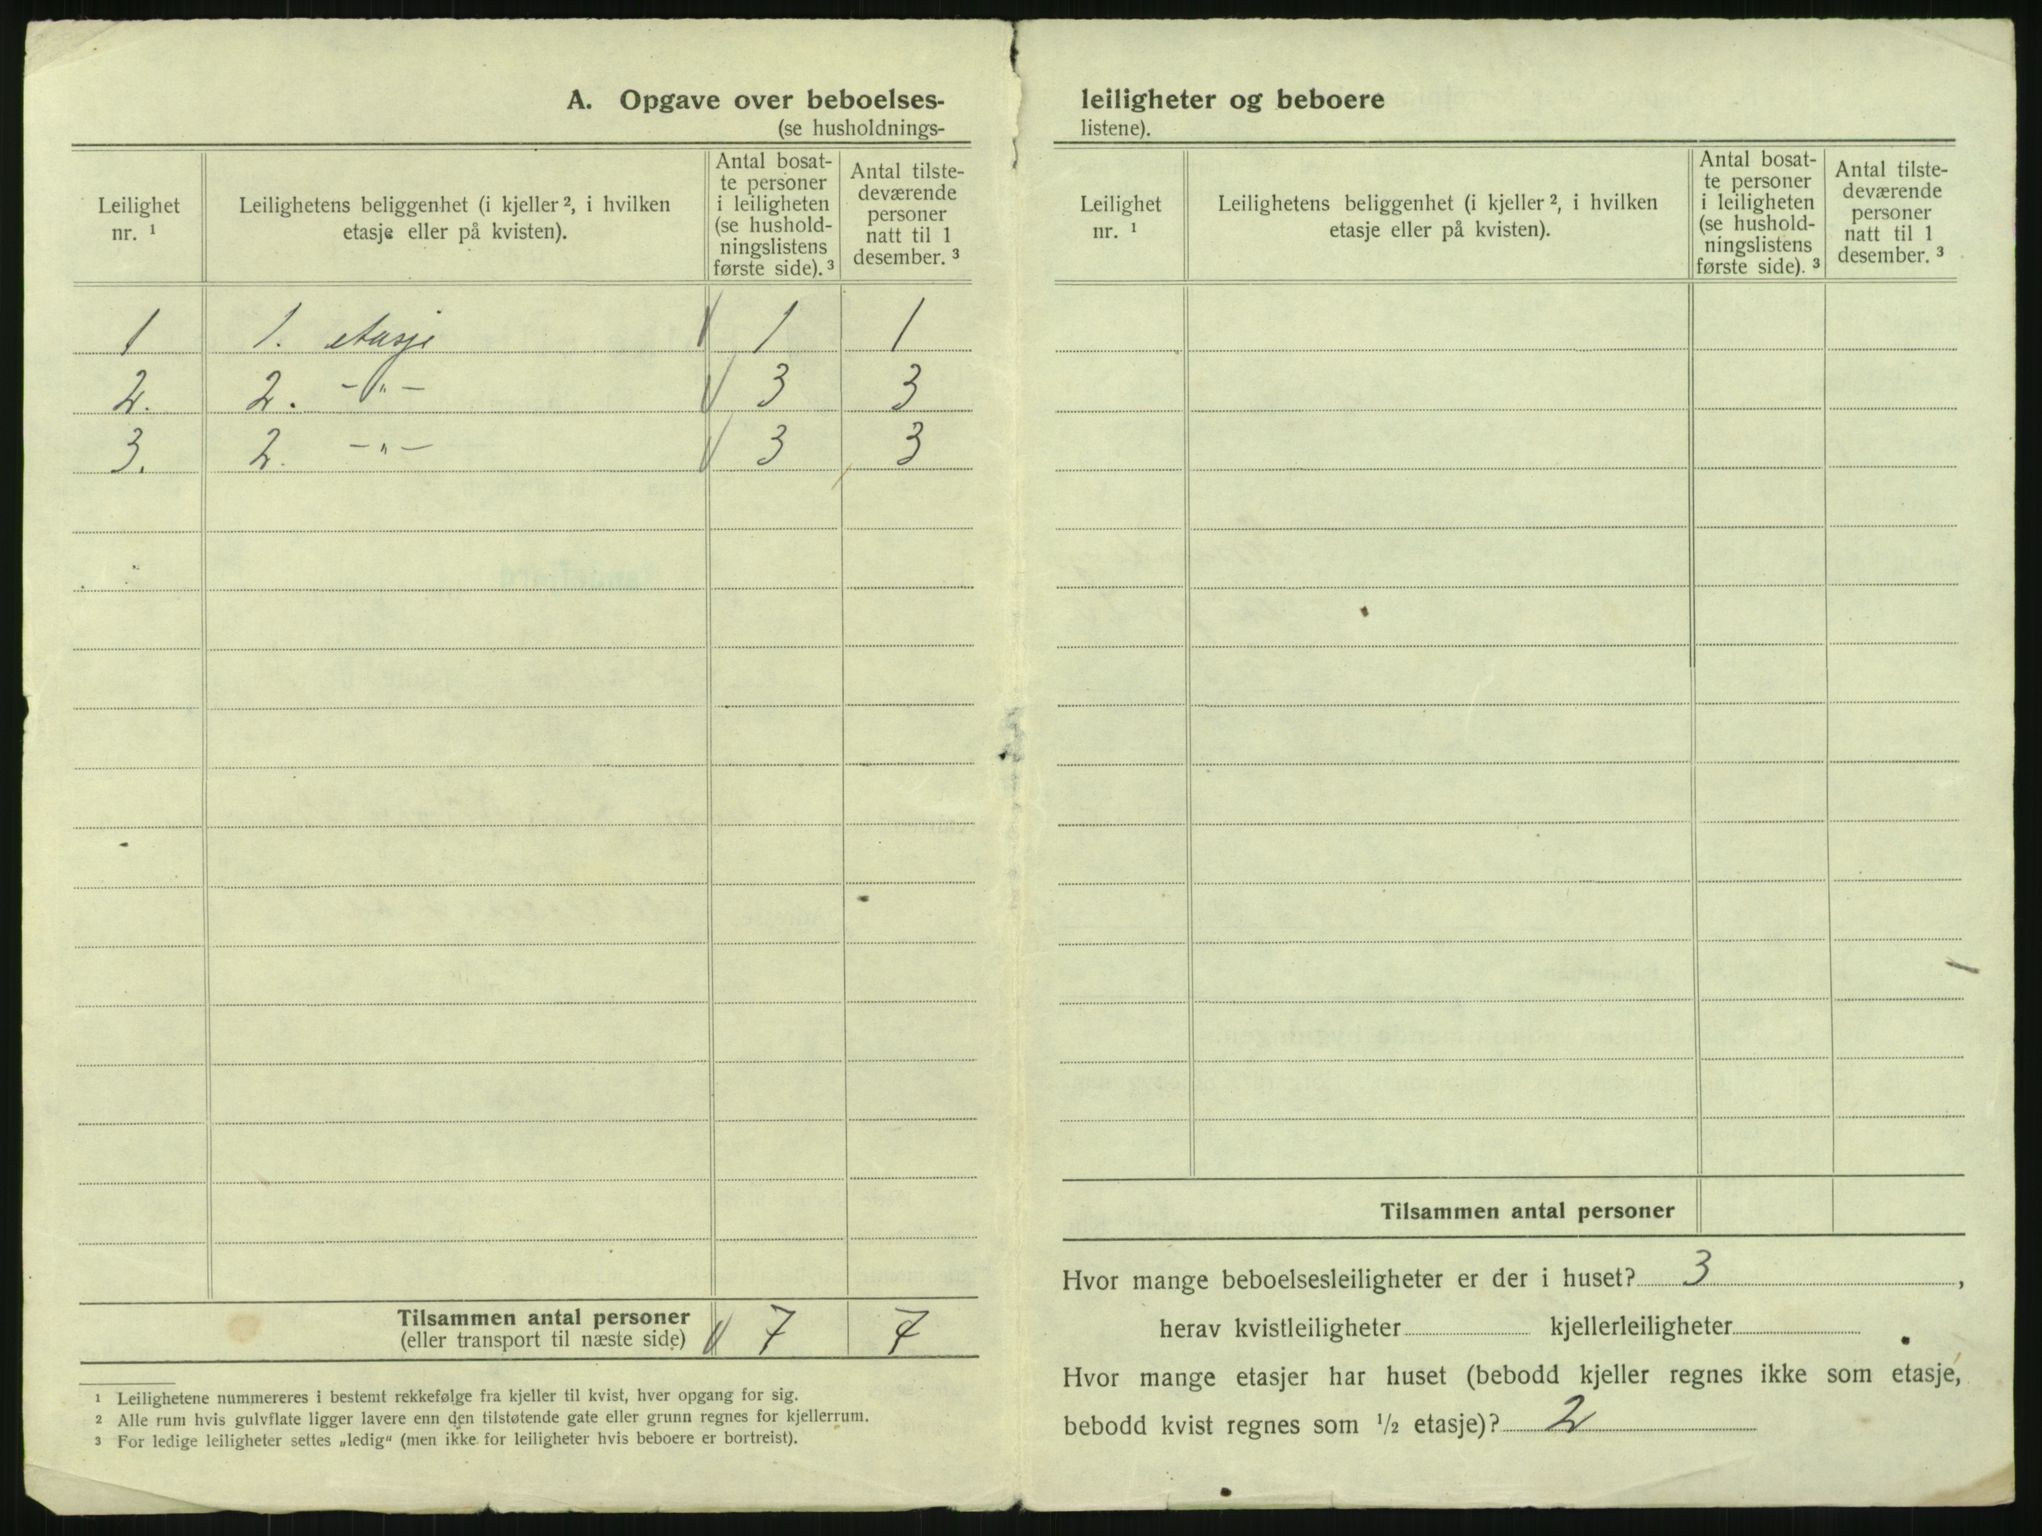 A. Opgave over beboelses-
(se husholdnings-
Leilighet nr. ¹
Leilighetens beliggenhet (i kjeller ², i hvilken etasje eller på kvisten).
Antal bosat-
te personer
i leiligheten
(se hushold-
ningslistens
første side). ³
Antal tilste-
deværende
personer
natt til 1
desember. ³
1 1. etasje 1 1
2. 2. -"- 3 3
3. 2. -"- 3 3
Tilsammen antal personer 7 7
(eller transport til næste side)
¹ Leilighetene nummereres i bestemt rekkefølge fra kjeller til kvist, hver opgang for sig.
² Alle rum hvis gulvflate ligger lavere enn den tilstøtende gate eller grunn regnes for kjellerrum.
³ For ledige leiligheter settes „ledig“ (men ikke for leiligheter hvis beboere er bortreist).
leiligheter og beboere
listene).
Leilighet nr. ¹
Leilighetens beliggenhet (i kjeller ², i hvilken etasje eller på kvisten).
Antal bosat-
te personer
i leiligheten
(se hushold-
ningslistens
første side). ³
Antal tilste-
deværende
personer
natt til 1
desember. ³
Tilsammen antal personer
Hvor mange beboelsesleiligheter er der i huset? 3 ,
herav kvistleiligheter kjellerleiligheter
Hvor mange etasjer har huset (bebodd kjeller regnes ikke som etasje,
bebodd kvist regnes som ½ etasje)? 2